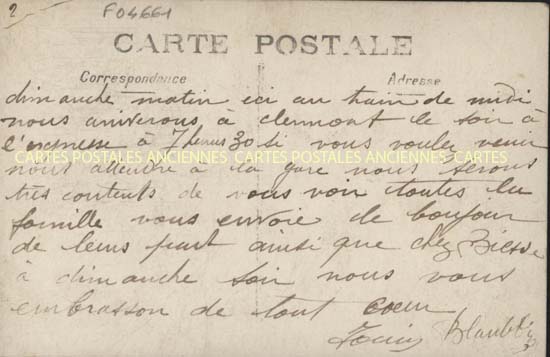 2
F04661
CARTE POSTALE
Correspondance Adresse
dimanche matin ici au train de midi
nous ariverons à clermont le soir à
l'expresse à 7 heures 30 si vous voulez venir
CARTES POSTALES ANCIENNES CARTES POSTALES ANCIENNES CARTES POSTALES ANCIENNES
nous attendre à la gare nous serons
très contents de vous voir toutes la
famille vous envoie de bonjour
de leurs part ainsi que chez
à dimanche soir nous vous
embrasson de tout coeur